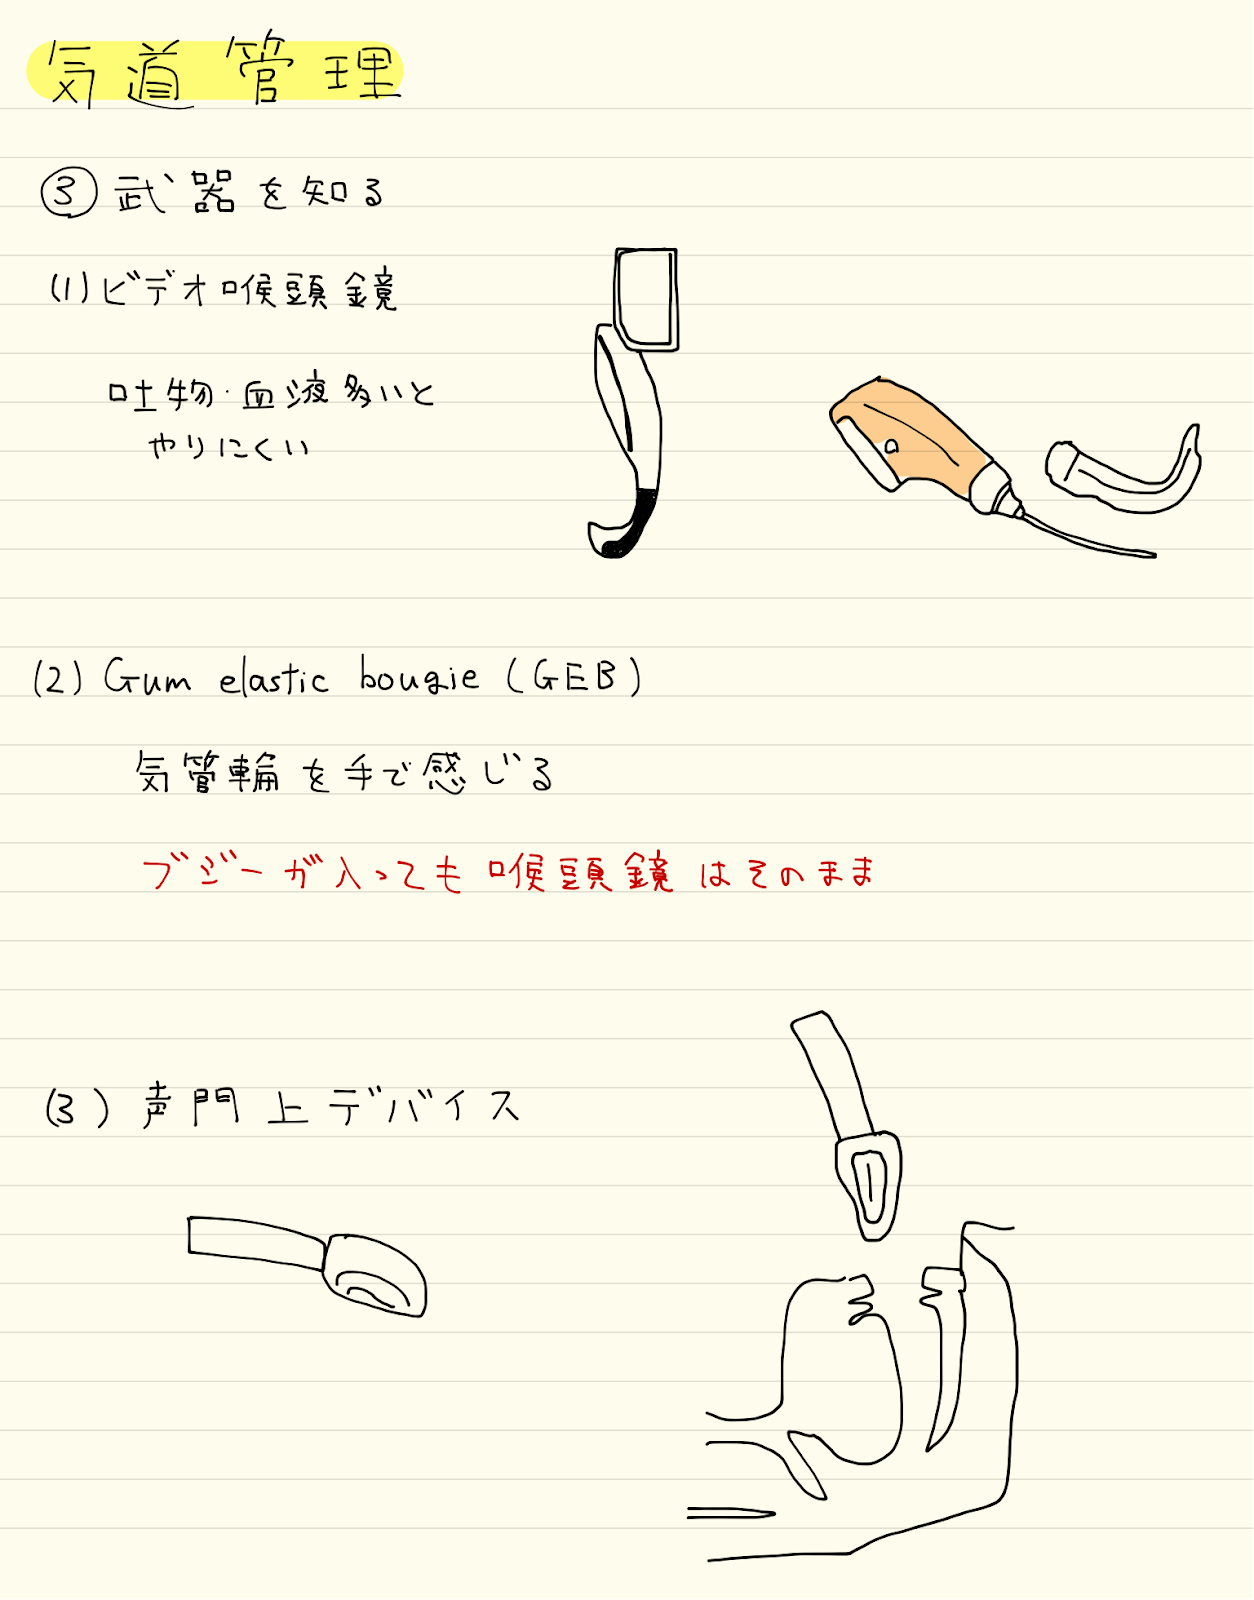 気道管理
③武器を知る
(1)ビデオ喉頭鏡
吐物・血液多いと
やりにくい
(2) Gum elastic bougie (GEB)
気管輪を手で感じる
ブジーが入っても喉頭鏡はそのまま
(3) 声門上デバイス